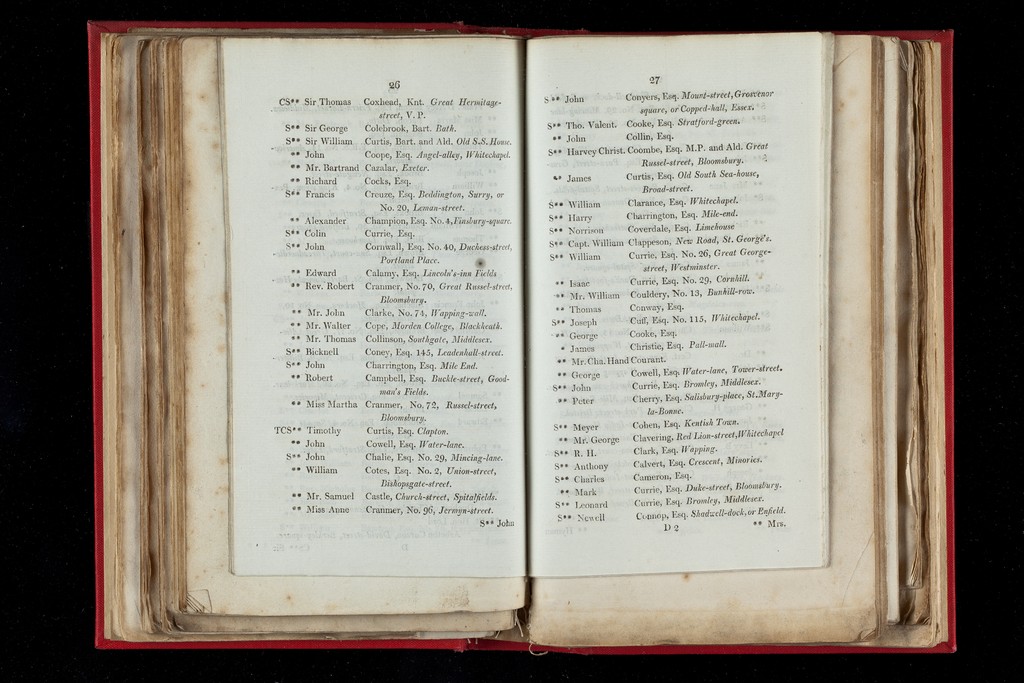 26
CS** Sir Thomas Coxhead, Knt. Great Hermitage-
street, V. P.
S** Sir George Colebrook, Bart. Bath.
S** Sir William Curtis, Bart. and Ald. Old S.S. House.
** John Coope, Esq. Angel-alley, Whitechapel.
** Mr. Bartrand Cazalar, Exeter.
** Richard Cocks, Esq.
S** Francis Creuze, Esq. Beddington, Surry, or
No. 20, Leman-street.
** Alexander Champion, Esq. No. 4, Finsbury-square.
S** Colin Currie, Esq.
S** John Cornwall, Esq. No. 40, Duchess-street,
Portland Place.
** Edward Calamy, Esq. Lincoln's-inn Fields
** Rev. Robert Cranmer, No. 70, Great Russel-street,
Bloomsbury.
** Mr. John Clarke, No. 74, Wapping-wall.
** Mr. Walter Cope, Morden College, Blackheath.
** Mr. Thomas Collinson, Southgate, Middlesex.
S** Bicknell Coney, Esq. 145, Leadenhall-street.
S** John Charrington, Esq. Mile End.
** Robert Campbell, Esq. Buckle-street, Good-
man's Fields.
** Miss Martha Cranmer, No. 72, Russel-street,
Bloomsbury.
TCS** Timothy Curtis, Esq. Clapton.
** John Cowell, Esq. Water-lane.
S** John Chalie, Esq. No. 29, Mincing-lane.
** William Cotes, Esq. No. 2, Union-street,
Bishopsgate-street.
** Mr. Samuel Castle, Church-street, Spitalfields.
** Miss Anne Cranmer, No. 96, Jermyn-street.
S** John
27
S** John Conyers, Esq. Mount-street, Grosvenor
square, or Copped-hall, Essex.
S** Tho. Valent. Cooke, Esq. Stratford-green.
** John Collin, Esq.
S** Harvey Christ. Coombe, Esq. M.P. and Ald. Great
Russel-street, Bloomsbury.
** James Curtis, Esq. Old South Sea-house,
Broad-street.
S** William Clarance, Esq. Whitechapel.
S** Harry Charrington, Esq. Mile-end.
S** Norrison Coverdale, Esq. Limehouse
S** Capt. William Clappeson, New Road, St. George's.
S** William Currie, Esq. No. 26, Great George-
street, Westminster.
** Isaac Currie, Esq. No. 29, Cornhill.
** Mr. William Couldery, No. 13, Bunhill-row.
** Thomas Conway, Esq.
S** Joseph Cuff, Esq. No. 115, Whitechapel.
** George Cooke, Esq.
* James Christie, Esq. Pall-wall.
** Mr. Cha. Hand Courant.
** George Cowell, Esq. Water-lane, Tower-street.
S** John Currie, Esq. Bromley, Middlesex.
** Peter Cherry, Esq. Salisbury-place, St. Mary-
la-Bonne.
S** Meyer Cohen, Esq. Kentish Town.
** Mr. George Clavering, Red Lion-street, Whitechapel
S** R. H. Clark, Esq. Wapping.
S** Anthony Calvert, Esq. Crescent, Minories.
S** Charles Cameron, Esq.
** Mark Currie, Esq. Duke-street, Bloomsbury.
S** Leonard Currie, Esq. Bromley, Middlesex.
S** Newell Connop, Esq. Shadwell-dock, or Enfield.
D 2 ** Mrs.